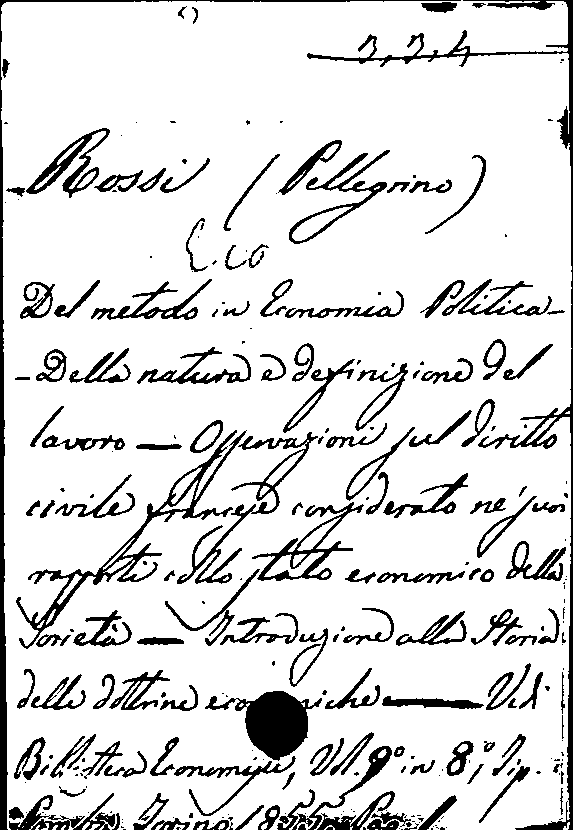 3,3,4
Rossi (Pellegrino)
Eco
Del metodo in Economia Politica -
- Della natura e definizione del
lavoro — Osservazioni sul diritto
civile francese considerato ne' suoi
rapporti collo stato economico della
Società — Introduzione alla Storia
delle dottrine economiche — Vedi
Biblioteca Economica, Vol. 9° in 8°, Tip.
Pomba, Torino 1855